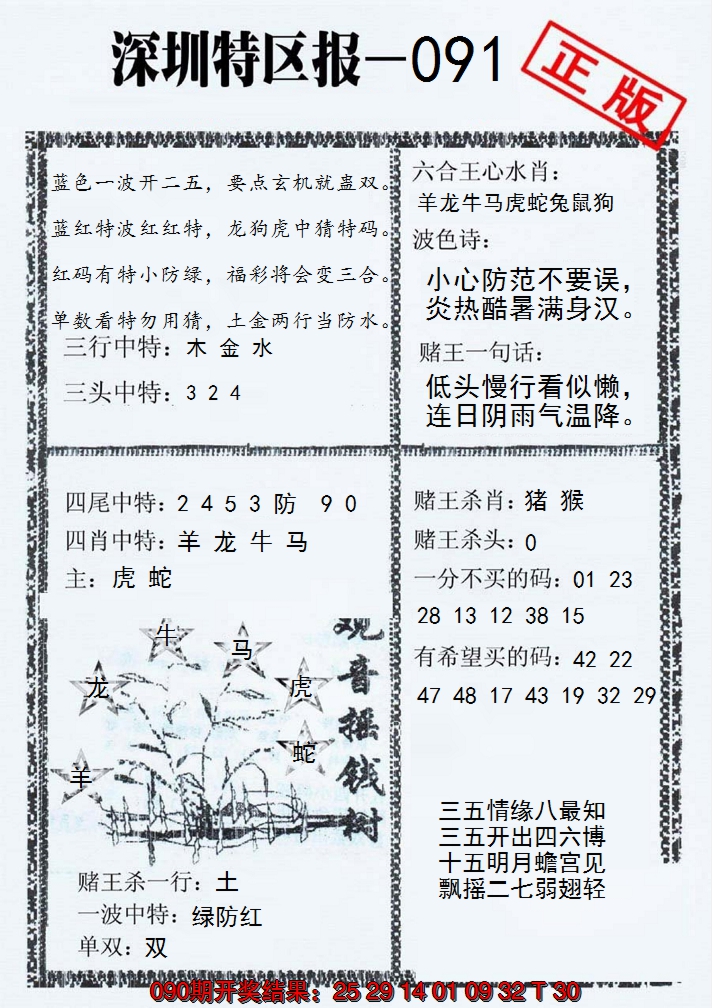 深圳特区报—091
正版
蓝色一波开二五，要点玄机就蛊双。
蓝红特波红红特，龙狗虎中猜特码。
红码有特小防绿，福彩将会变三合。
单数看特勿用猜，土金两行当防水。
三行中特：木 金 水
三头中特：3 2 4
六合王心水肖：
羊龙牛马虎蛇兔鼠狗
波色诗：
小心防范不要误，
炎热酷暑满身汉。
赌王一句话：
低头慢行看似懒，
连日阴雨气温降。
四尾中特：2 4 5 3 防 9 0
四肖中特：羊 龙 牛 马
主：虎 蛇
牛
马
龙
虎
蛇
羊
观音摇钱树
赌王杀一行：土
一波中特：绿防红
单双：双
赌王杀肖：猪 猴
赌王杀头：0
一分不买的码：01 23
28 13 12 38 15
有希望买的码：42 22
47 48 17 43 19 32 29
三五情缘八最知
三五开出四六博
十五明月蟾宫见
飘摇二七弱翅轻
090期开奖结果：25 29 14 01 09 32 T 30